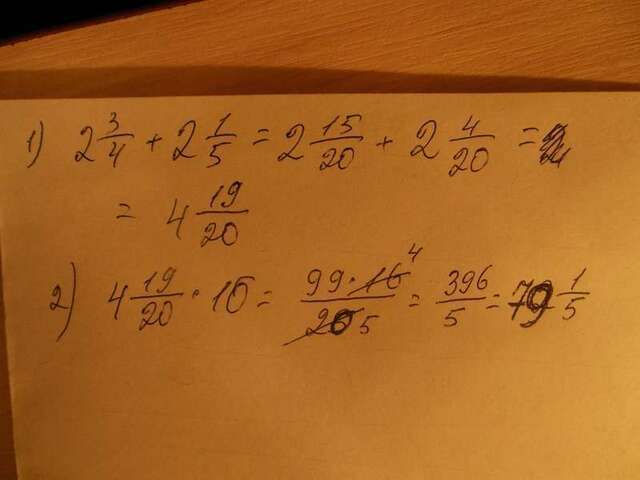 1) 2 3/4 + 2 1/5 = 2 15/20 + 2 4/20 =
= 4 19/20
2) 4 19/20 · 16 = 99 · 16 4 / 20 5 = 396/5 = 79 1/5